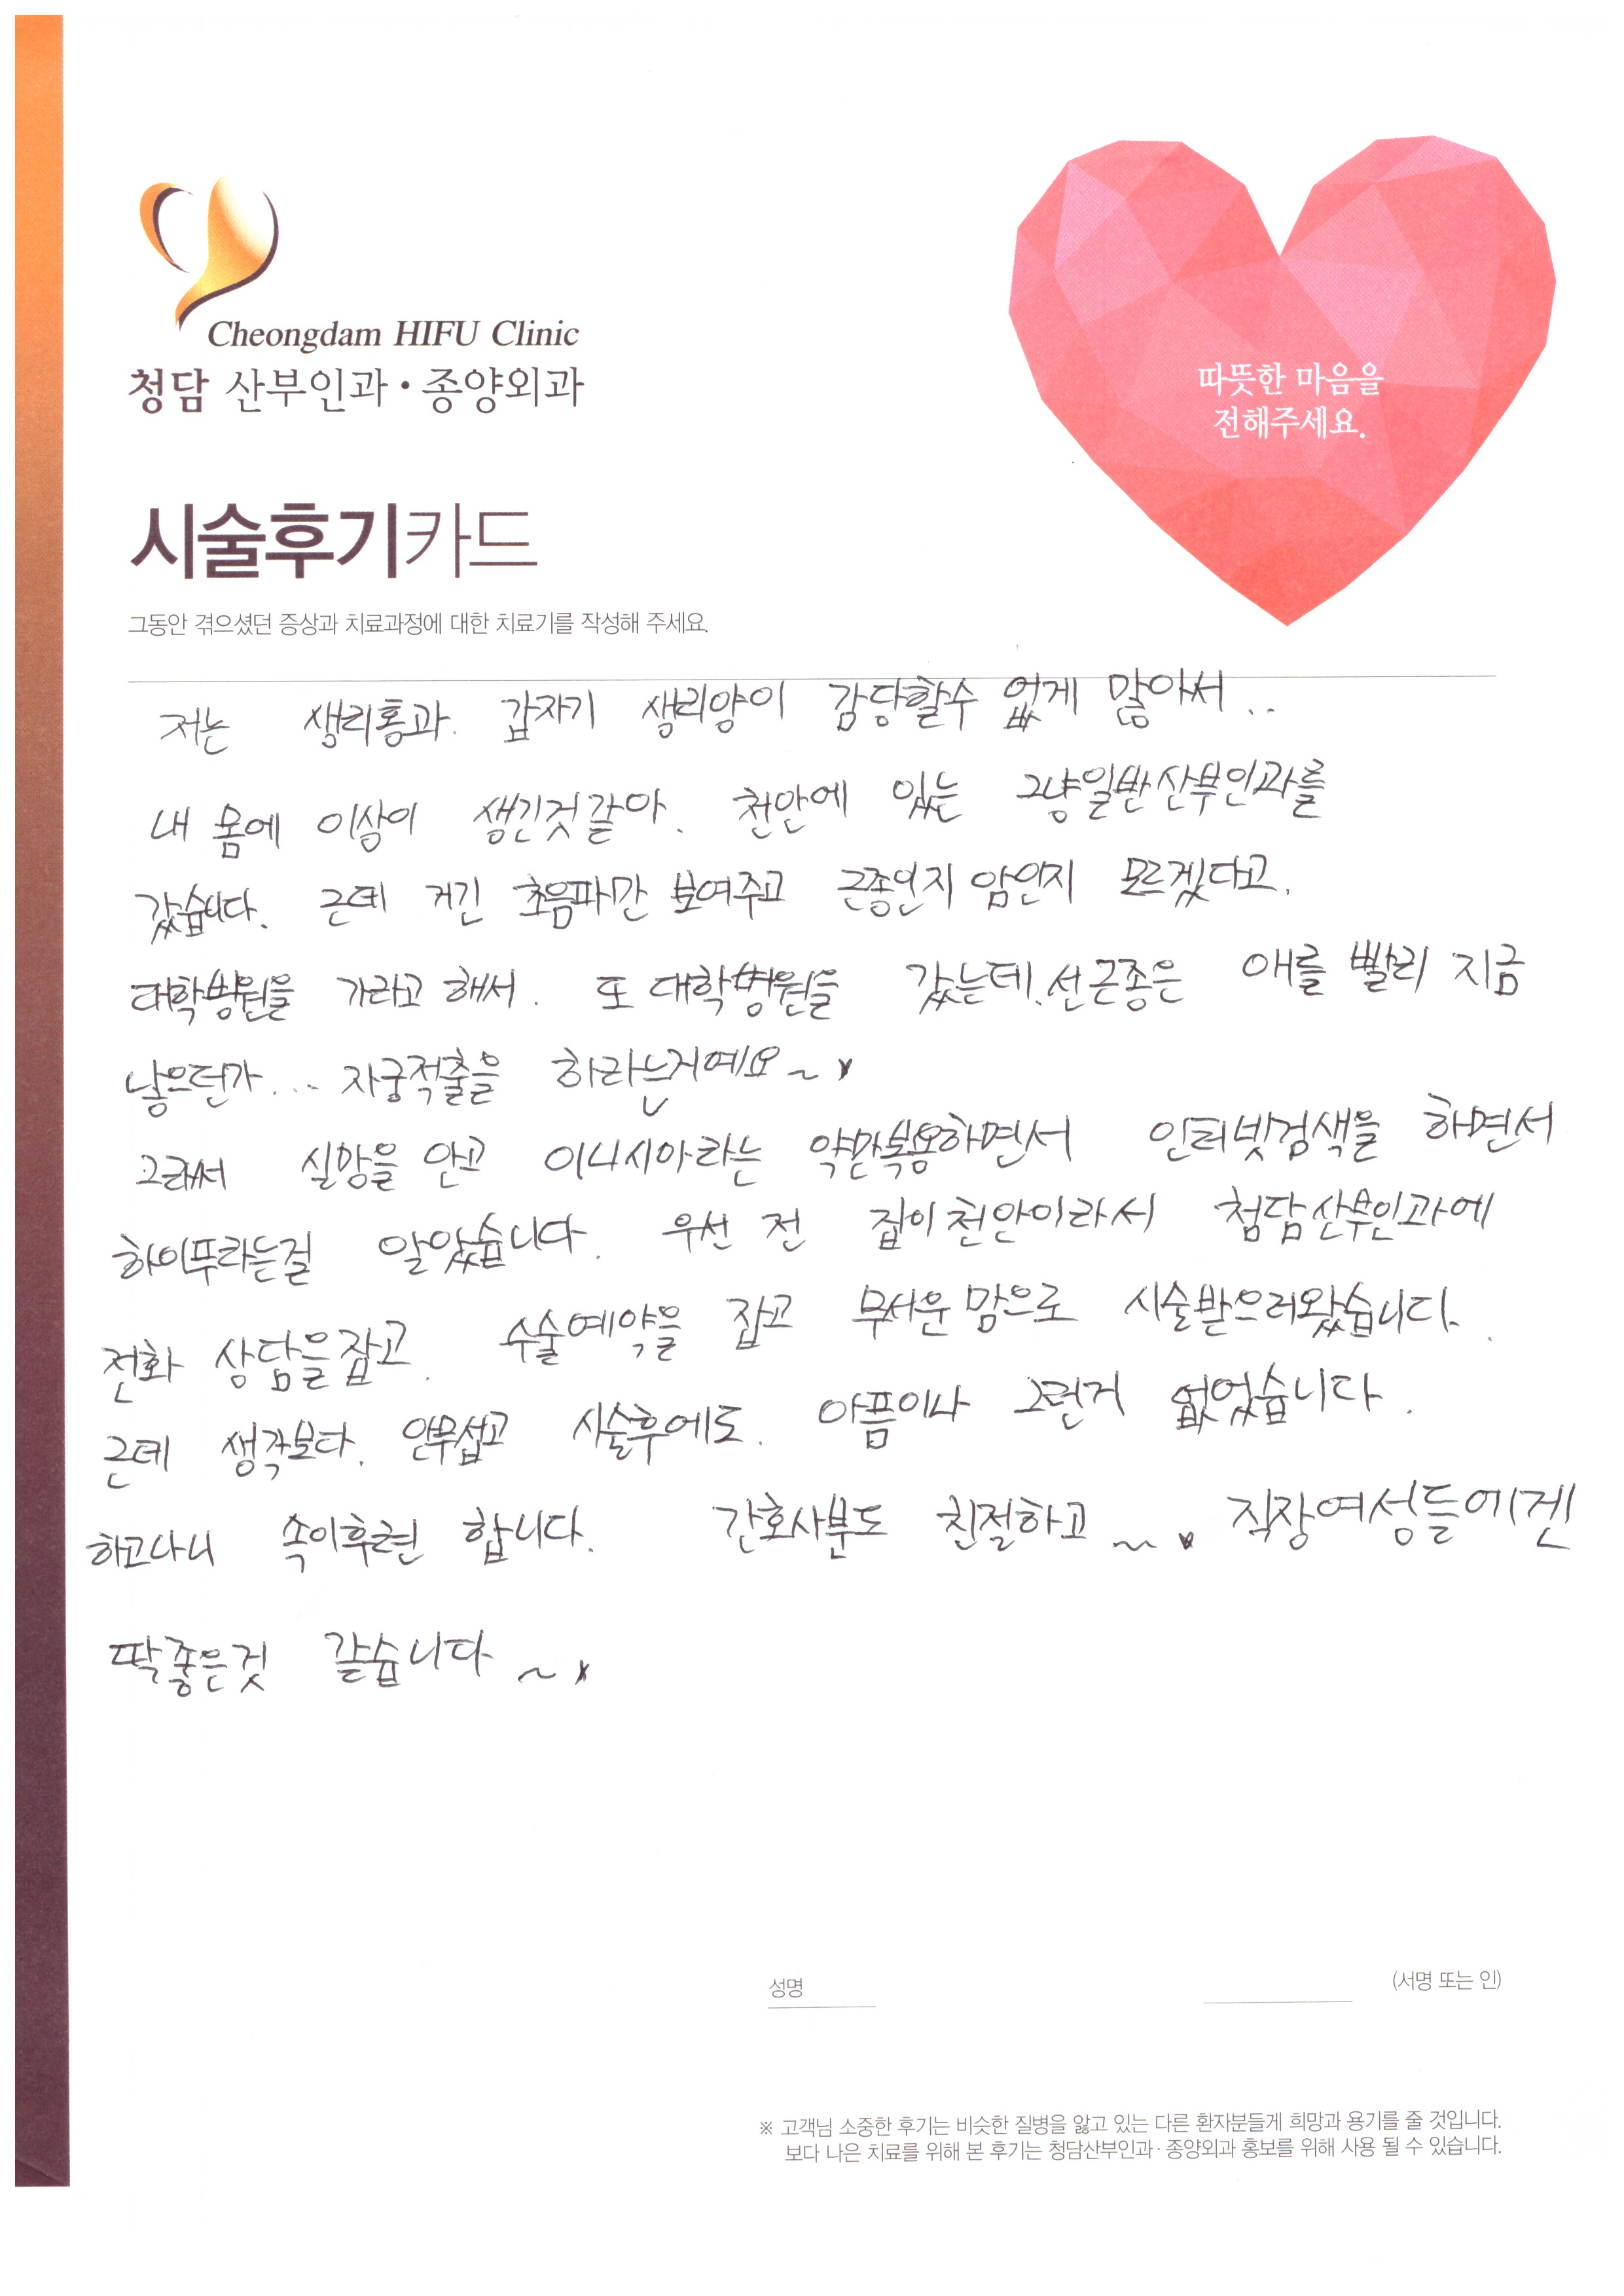 Cheongdam HIFU Clinic
청담 산부인과・종양외과
따뜻한 마음을
전해주세요.
시술후기카드
그동안 겪으셨던 증상과 치료과정에 대한 치료기를 작성해 주세요.
저는 생리통과. 갑자기 생리양이 감당할수 없게 많아서..
내 몸에 이상이 생긴것같아. 천안에 있는 그냥일반산부인과를
갔습니다. 근데 거긴 초음파만 보여주고 근종인지 암인지 모르겠다고.
대학병원을 가라고 해서. 또 대학병원을 갔는데. 선근종은 애를 빨리 지금
낳으던가... 자궁적출을 하라는거예요~
그래서 실망을 안고 이니시아라는 약만복용하면서 인터넷검색을 하면서
하이푸라는걸 알았습니다. 우선 전 집이천안이라서 청담산부인과에
전화 상담을잡고. 수술예약을 잡고 무서운맘으로 시술받으러왔습니다.
근데 생각보다. 안무섭고 시술후에도. 아픔이나 그런거 없었습니다.
하고나니 속이후련 합니다. 간호사분도 친절하고~ 직장여성들에겐
딱좋은것 같습니다~
성명 (서명 또는 인)
※ 고객님 소중한 후기는 비슷한 질병을 앓고 있는 다른 환자분들게 희망과 용기를 줄 것입니다.
보다 나은 치료를 위해 본 후기는 청담산부인과・종양외과 홍보를 위해 사용 될 수 있습니다.